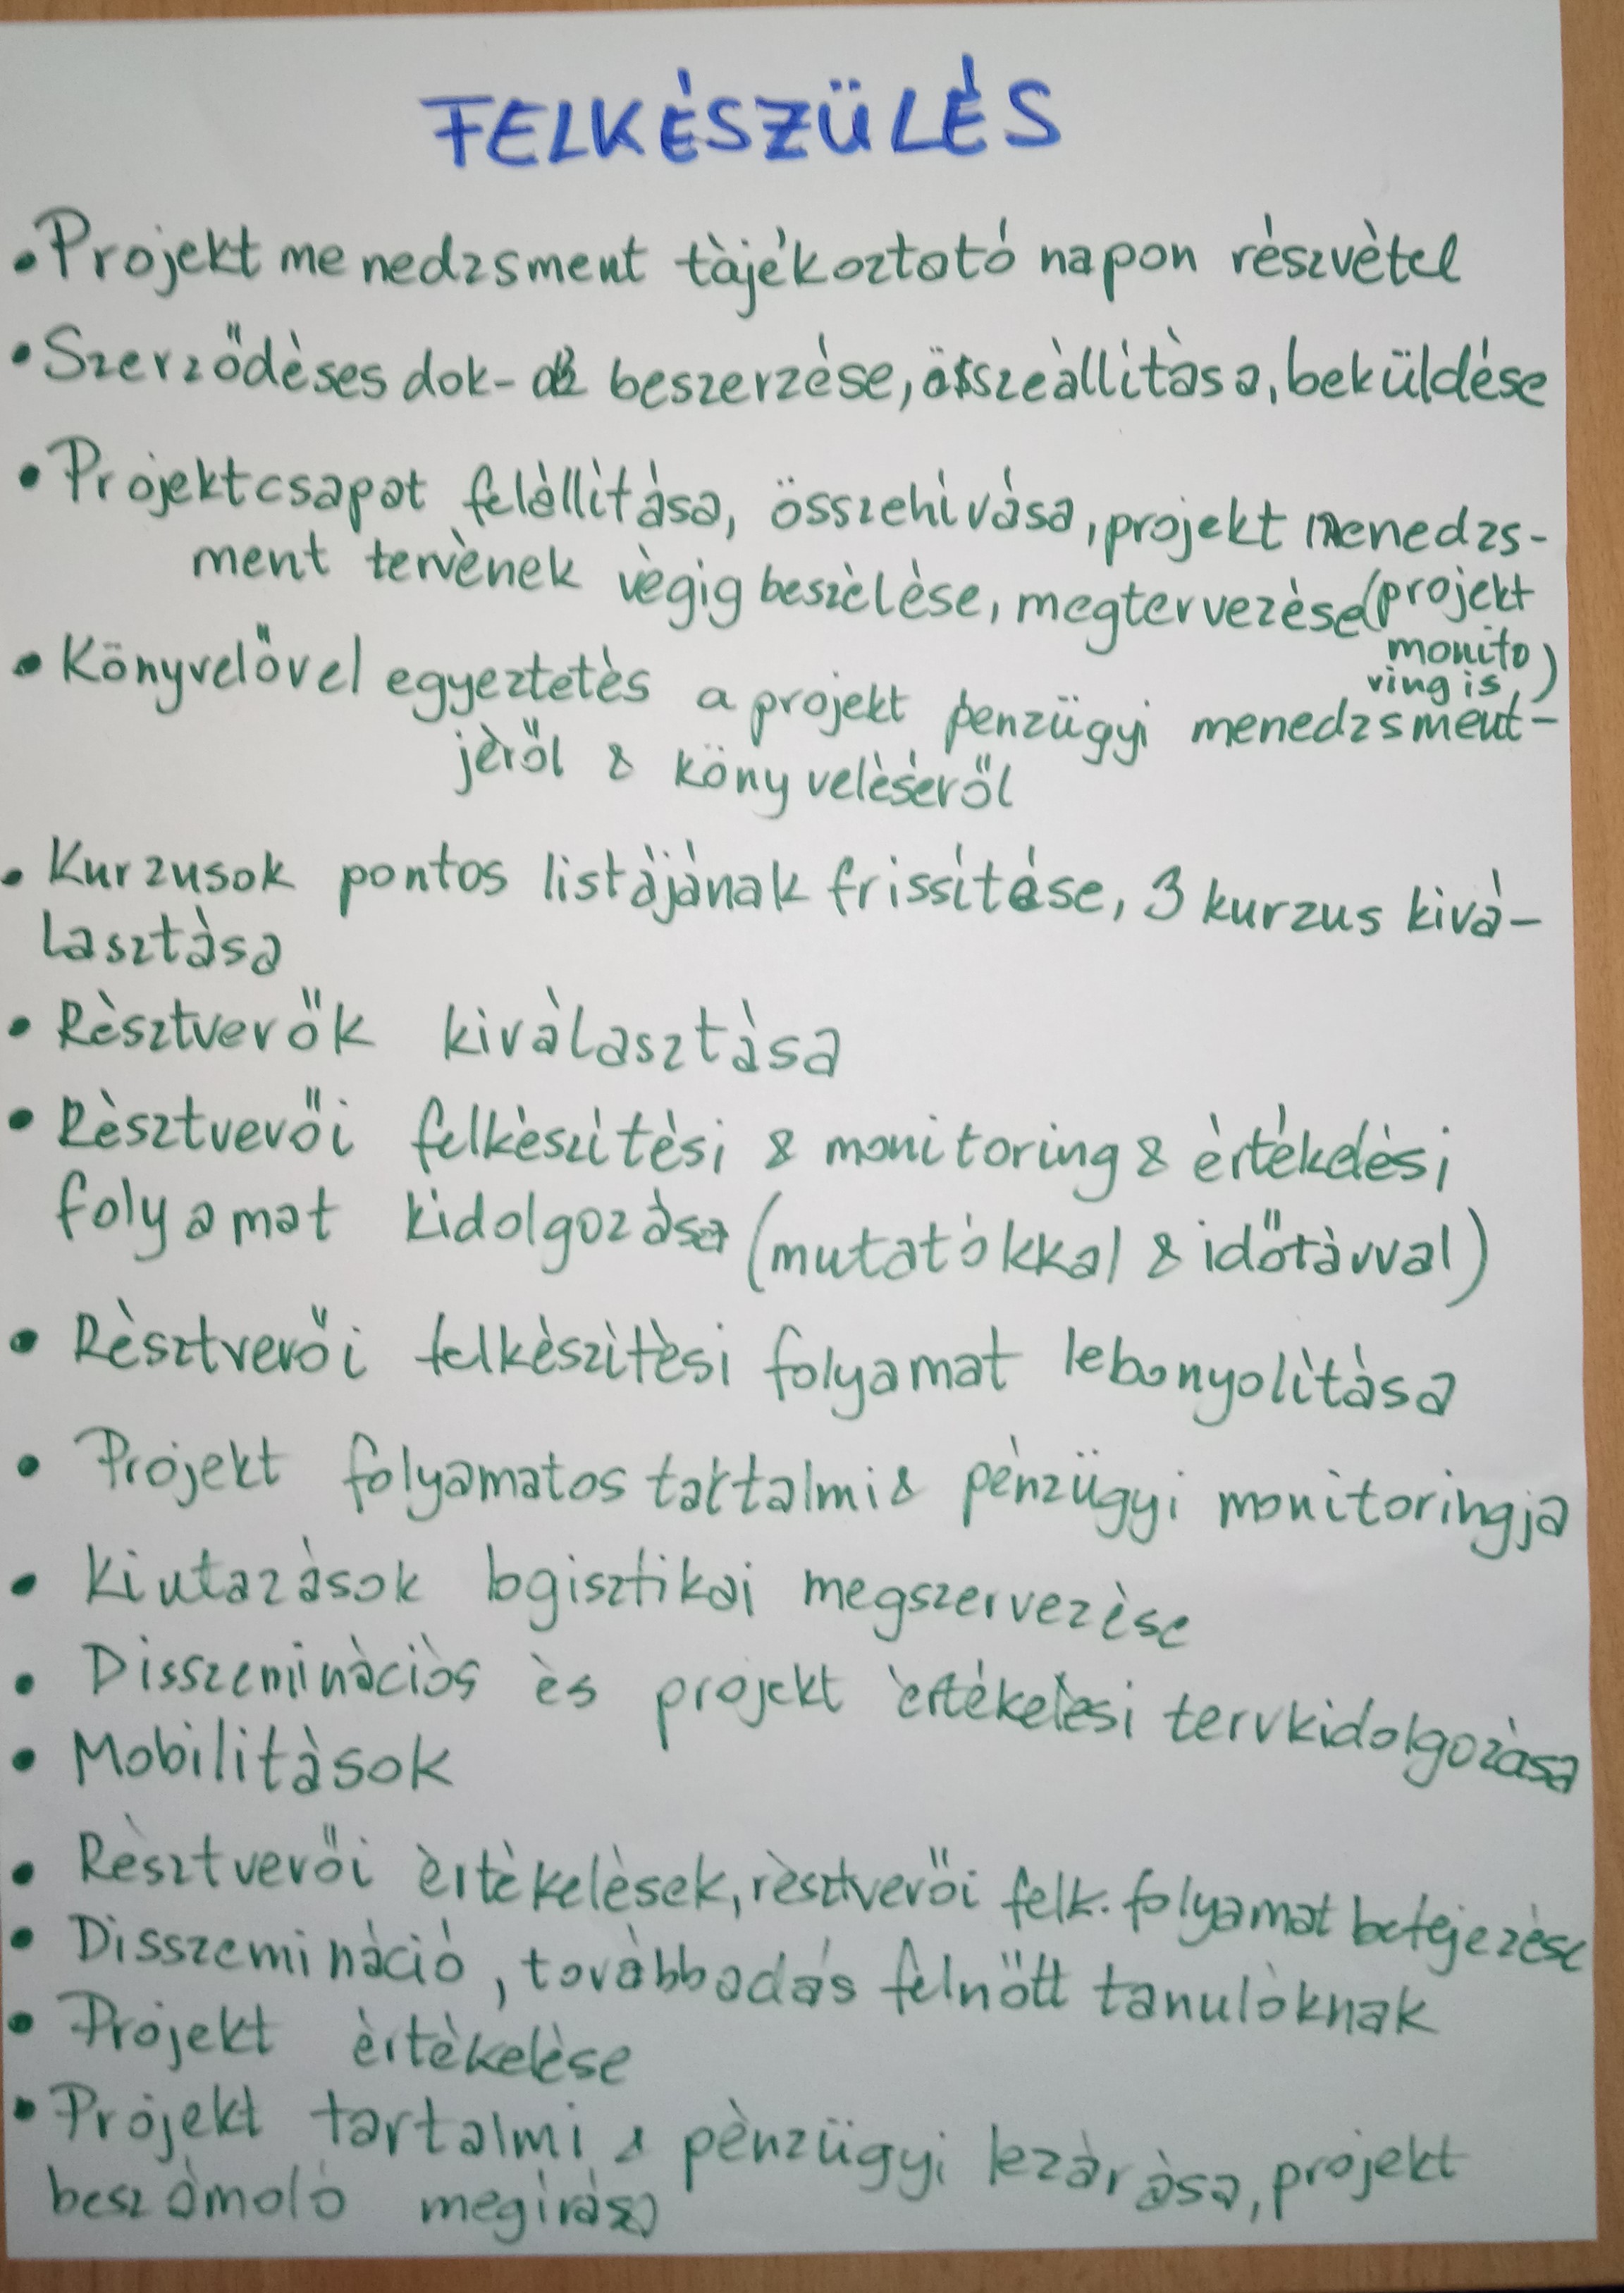 FELKÉSZÜLÉS
• Projekt menedzsment tájékoztató napon részvétel
• Szerződéses dok-ok beszerzése, összeállítása, beküldése
• Projektcsapat felállítása, összehívása, projekt menedzs-
ment tervének végig beszélése, megtervezése (projekt
monito
ring is)
• Könyvelővel egyeztetés a projekt pénzügyi menedzsment-
jéről & könyveléséről
• Kurzusok pontos listájának frissítése, 3 kurzus kivá-
lasztása
• Résztvevők kiválasztása
• Résztvevői felkészítési & monitoring & értékelési
folyamat kidolgozása (mutatókkal & időtávval)
• Résztvevői felkészítési folyamat lebonyolítása
• Projekt folyamatos tartalmi & pénzügyi monitoringja
• Kiutazások logisztikai megszervezése
• Disszeminációs és projekt értékelési terv kidolgozása
• Mobilitások
• Résztvevői értékelések, résztvevői felk. folyamat befejezése
• Disszemináció, továbbadás felnőtt tanulóknak
• Projekt értékelése
• Projekt tartalmi & pénzügyi lezárása, projekt
beszámoló megírása